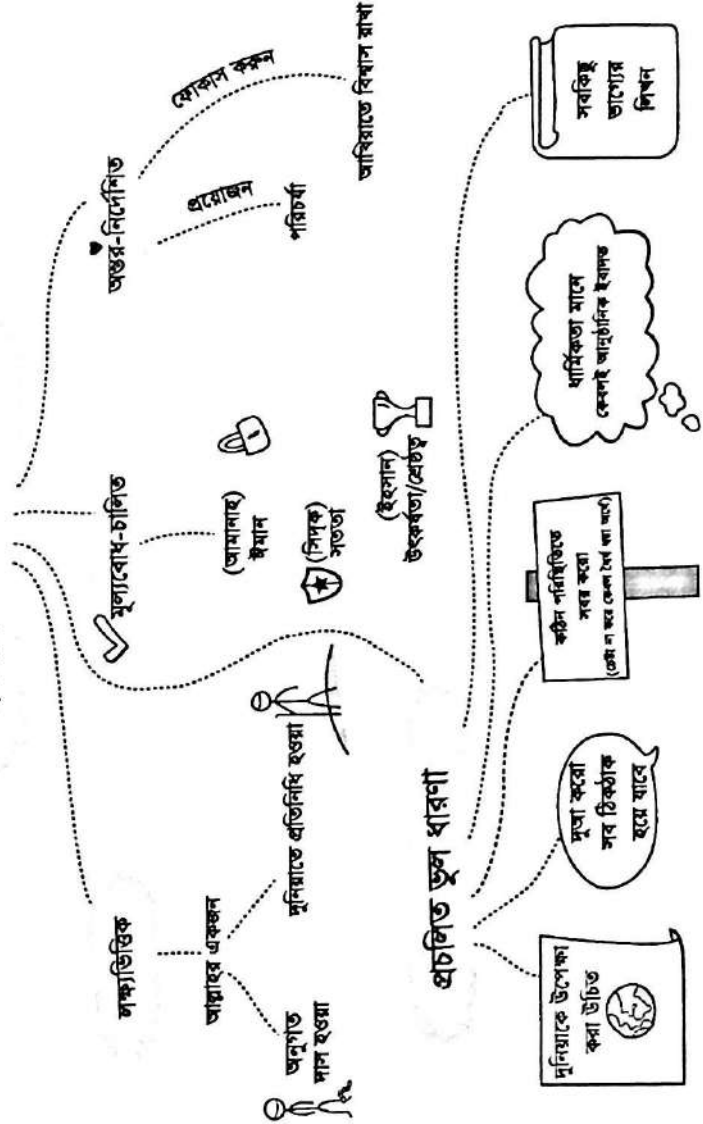 লক্ষ্যভিত্তিক
আল্লাহর একজন
অনুগত
দাস হওয়া
দুনিয়াতে প্রতিনিধি হওয়া
মূল্যবোধ-চালিত
(আমানাহ)
ঈমান
(সিদ্‌ক)
সততা
(ইহসান)
উৎকর্ষতা/শ্রেষ্ঠত্ব
অন্তর-নির্দেশিত
প্রয়োজন
পরিচর্যা
ফোকাস করুন
আখিরাতে বিশ্বাস রাখা
প্রচলিত ভুল ধারণা
দুনিয়াকে উপেক্ষা
করা উচিত
দুআ করো
সব ঠিকঠাক
হয়ে যাবে
কঠিন পরিস্থিতিতে
সবর করো
(চেষ্টা না করে কেবল ধৈর্য ধরা অর্থে)
ধার্মিকতা মানে
কেবলই আনুষ্ঠানিক ইবাদত
সবকিছু
ভাগ্যের
লিখন